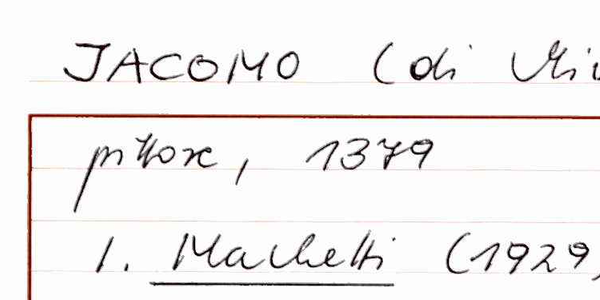 JACOMO (di
pittore, 1379
1. Machetti (1929,